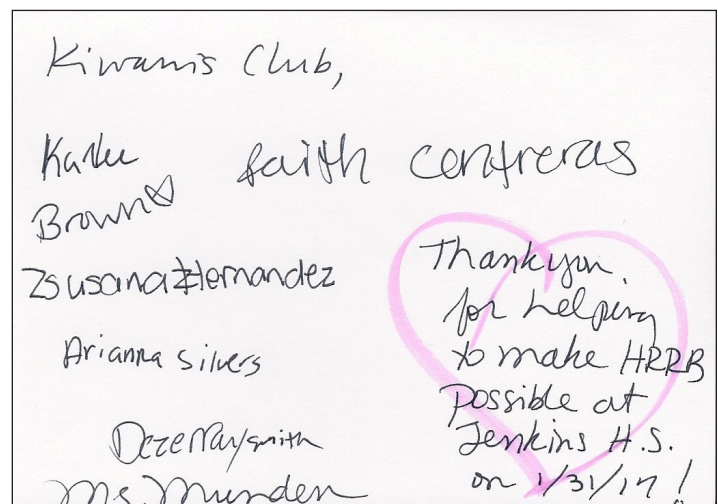 Kiwanis Club,
faith contreras
Brown
Zsusana Hernandez
Arianna Silvers
Ms. Munden
Thank you
for helping
to make HRRB
possible at
Jenkins H.S.
on 1/31/17!